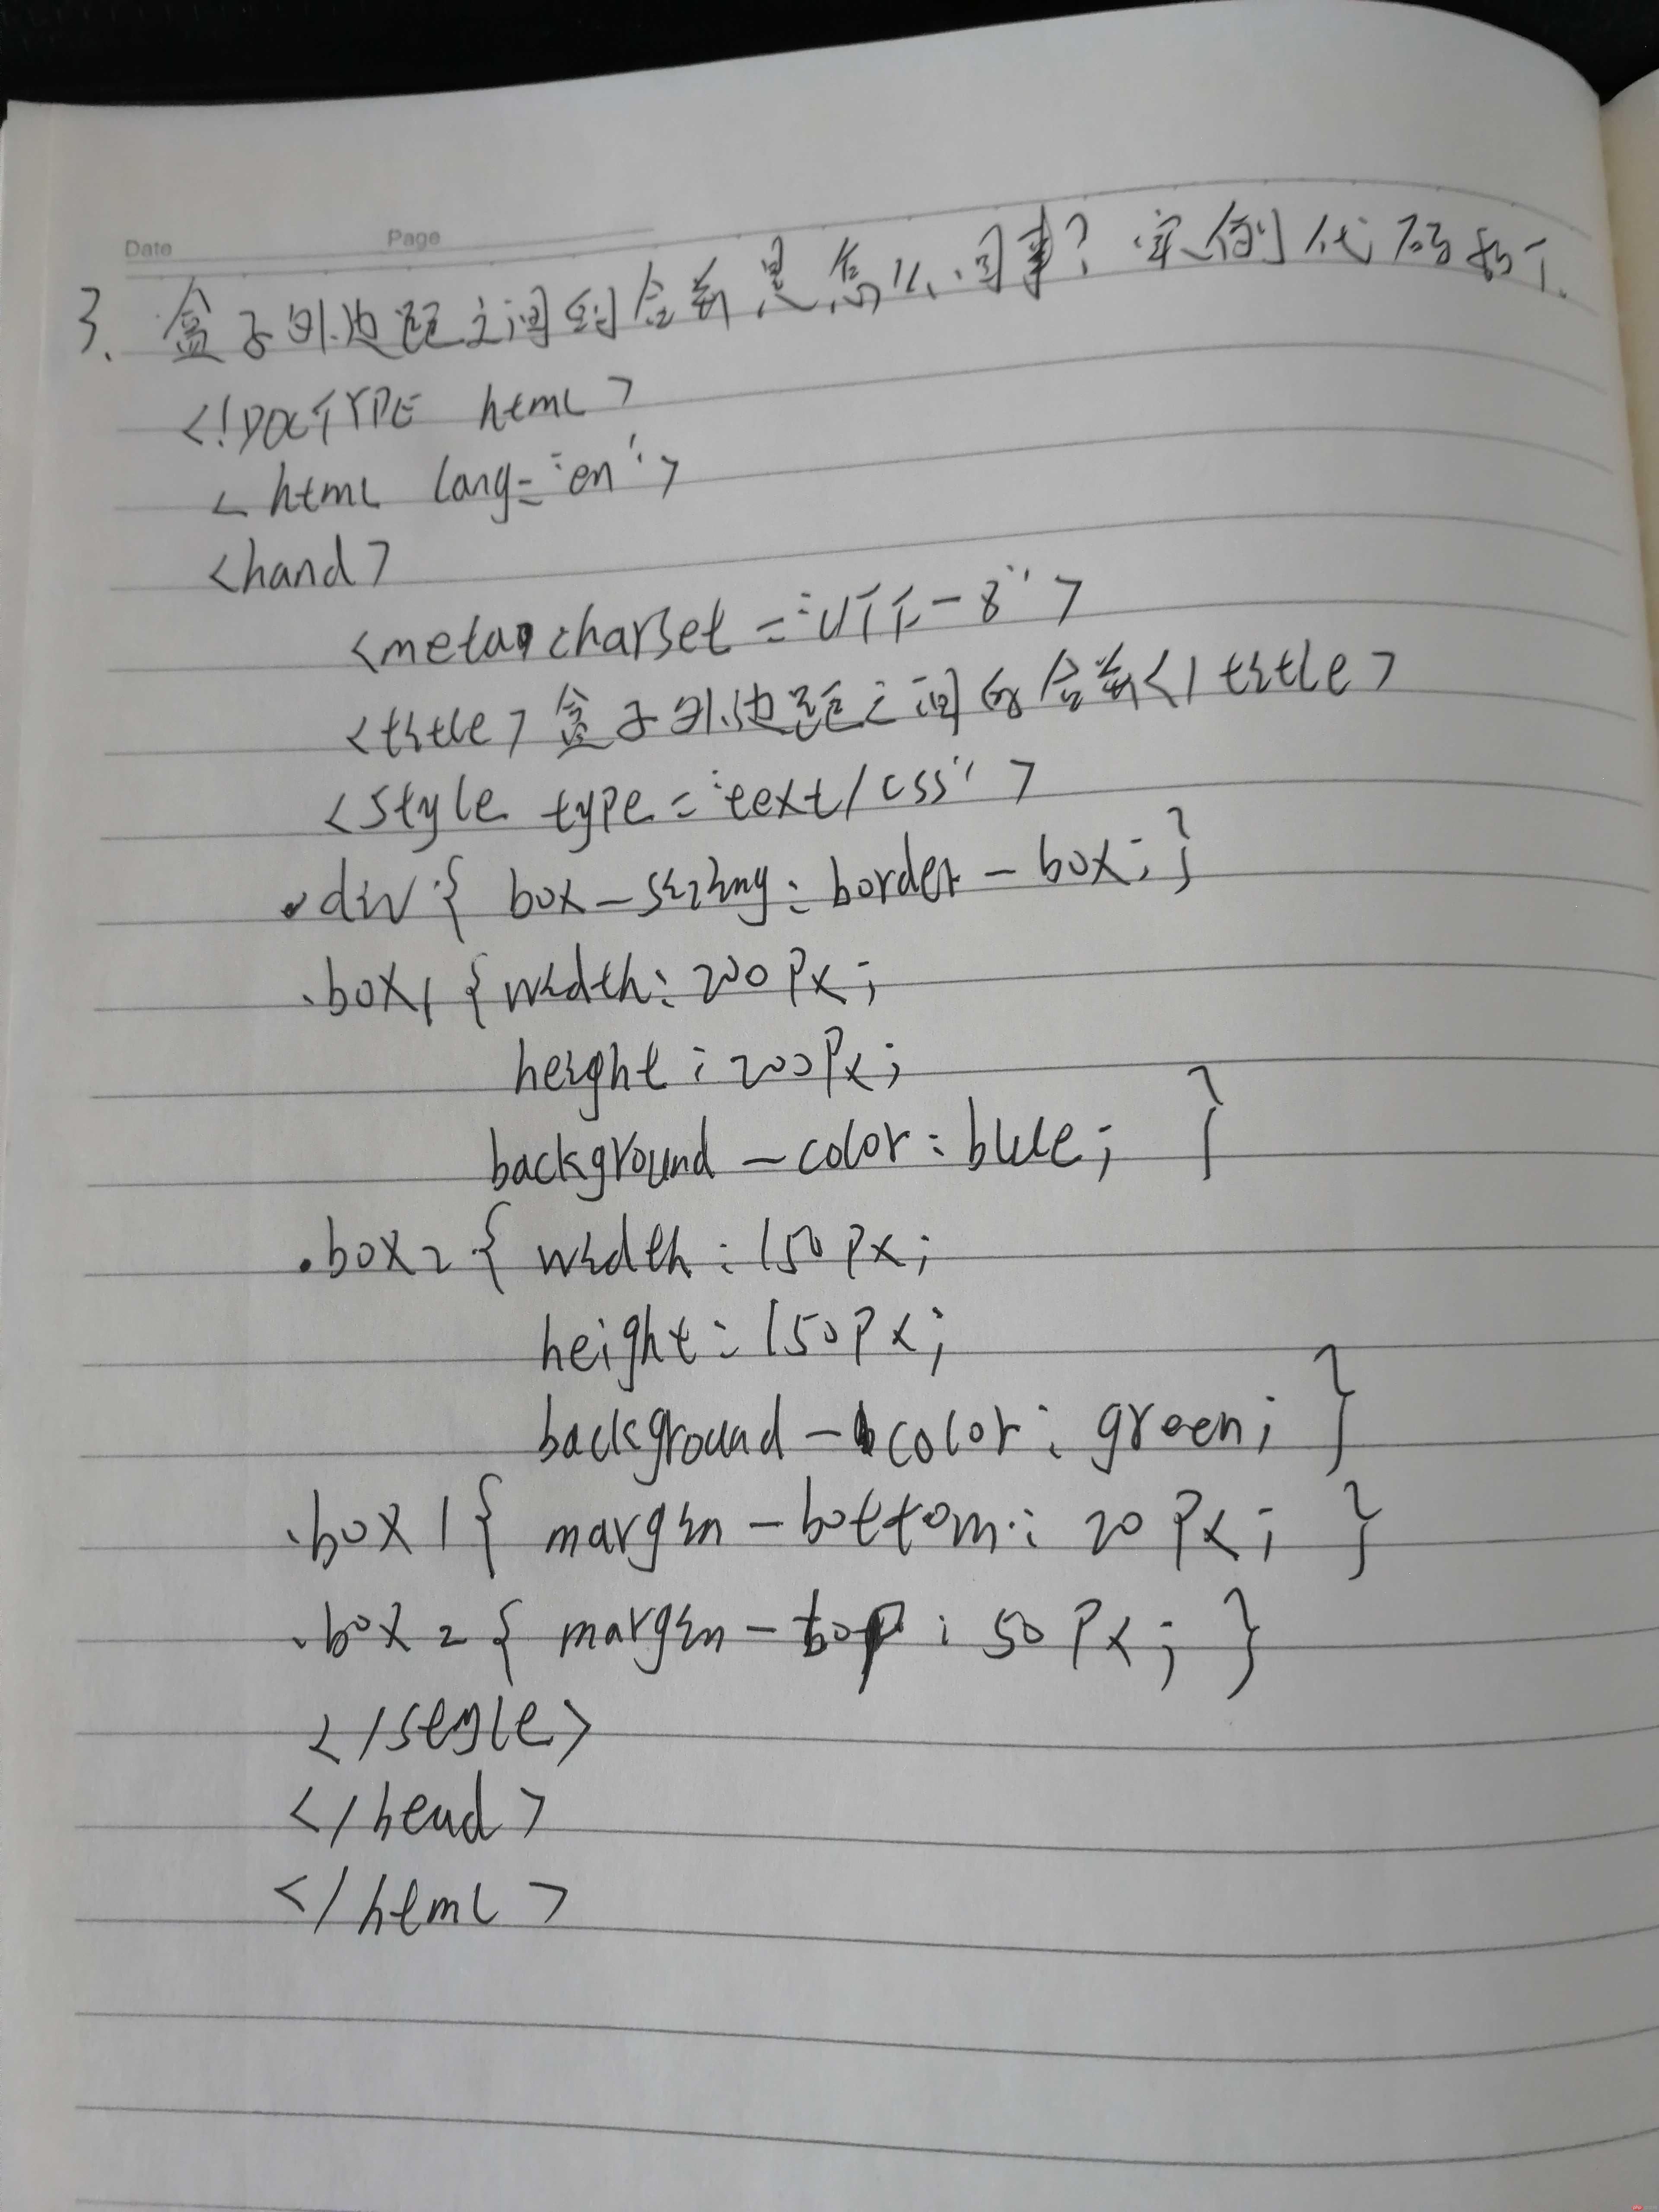 Date Page
3、盒子外边距之间的合并是怎么回事?实例代码如下.
<!DOCTYPE html>
<html lang="en">
<hand>
<meta charset="UTF-8">
<title>盒子外边距之间的合并</title>
<style type="text/css">
.div{ box-sizing:border-box;}
.box1{width:200px;
height:200px;
background-color:blue; }
.box2{ width:150px;
height:150px;
background-color:green; }
.box1{ margin-bottom:20px; }
.box2{ margin-top:50px; }
</style>
</head>
</html>